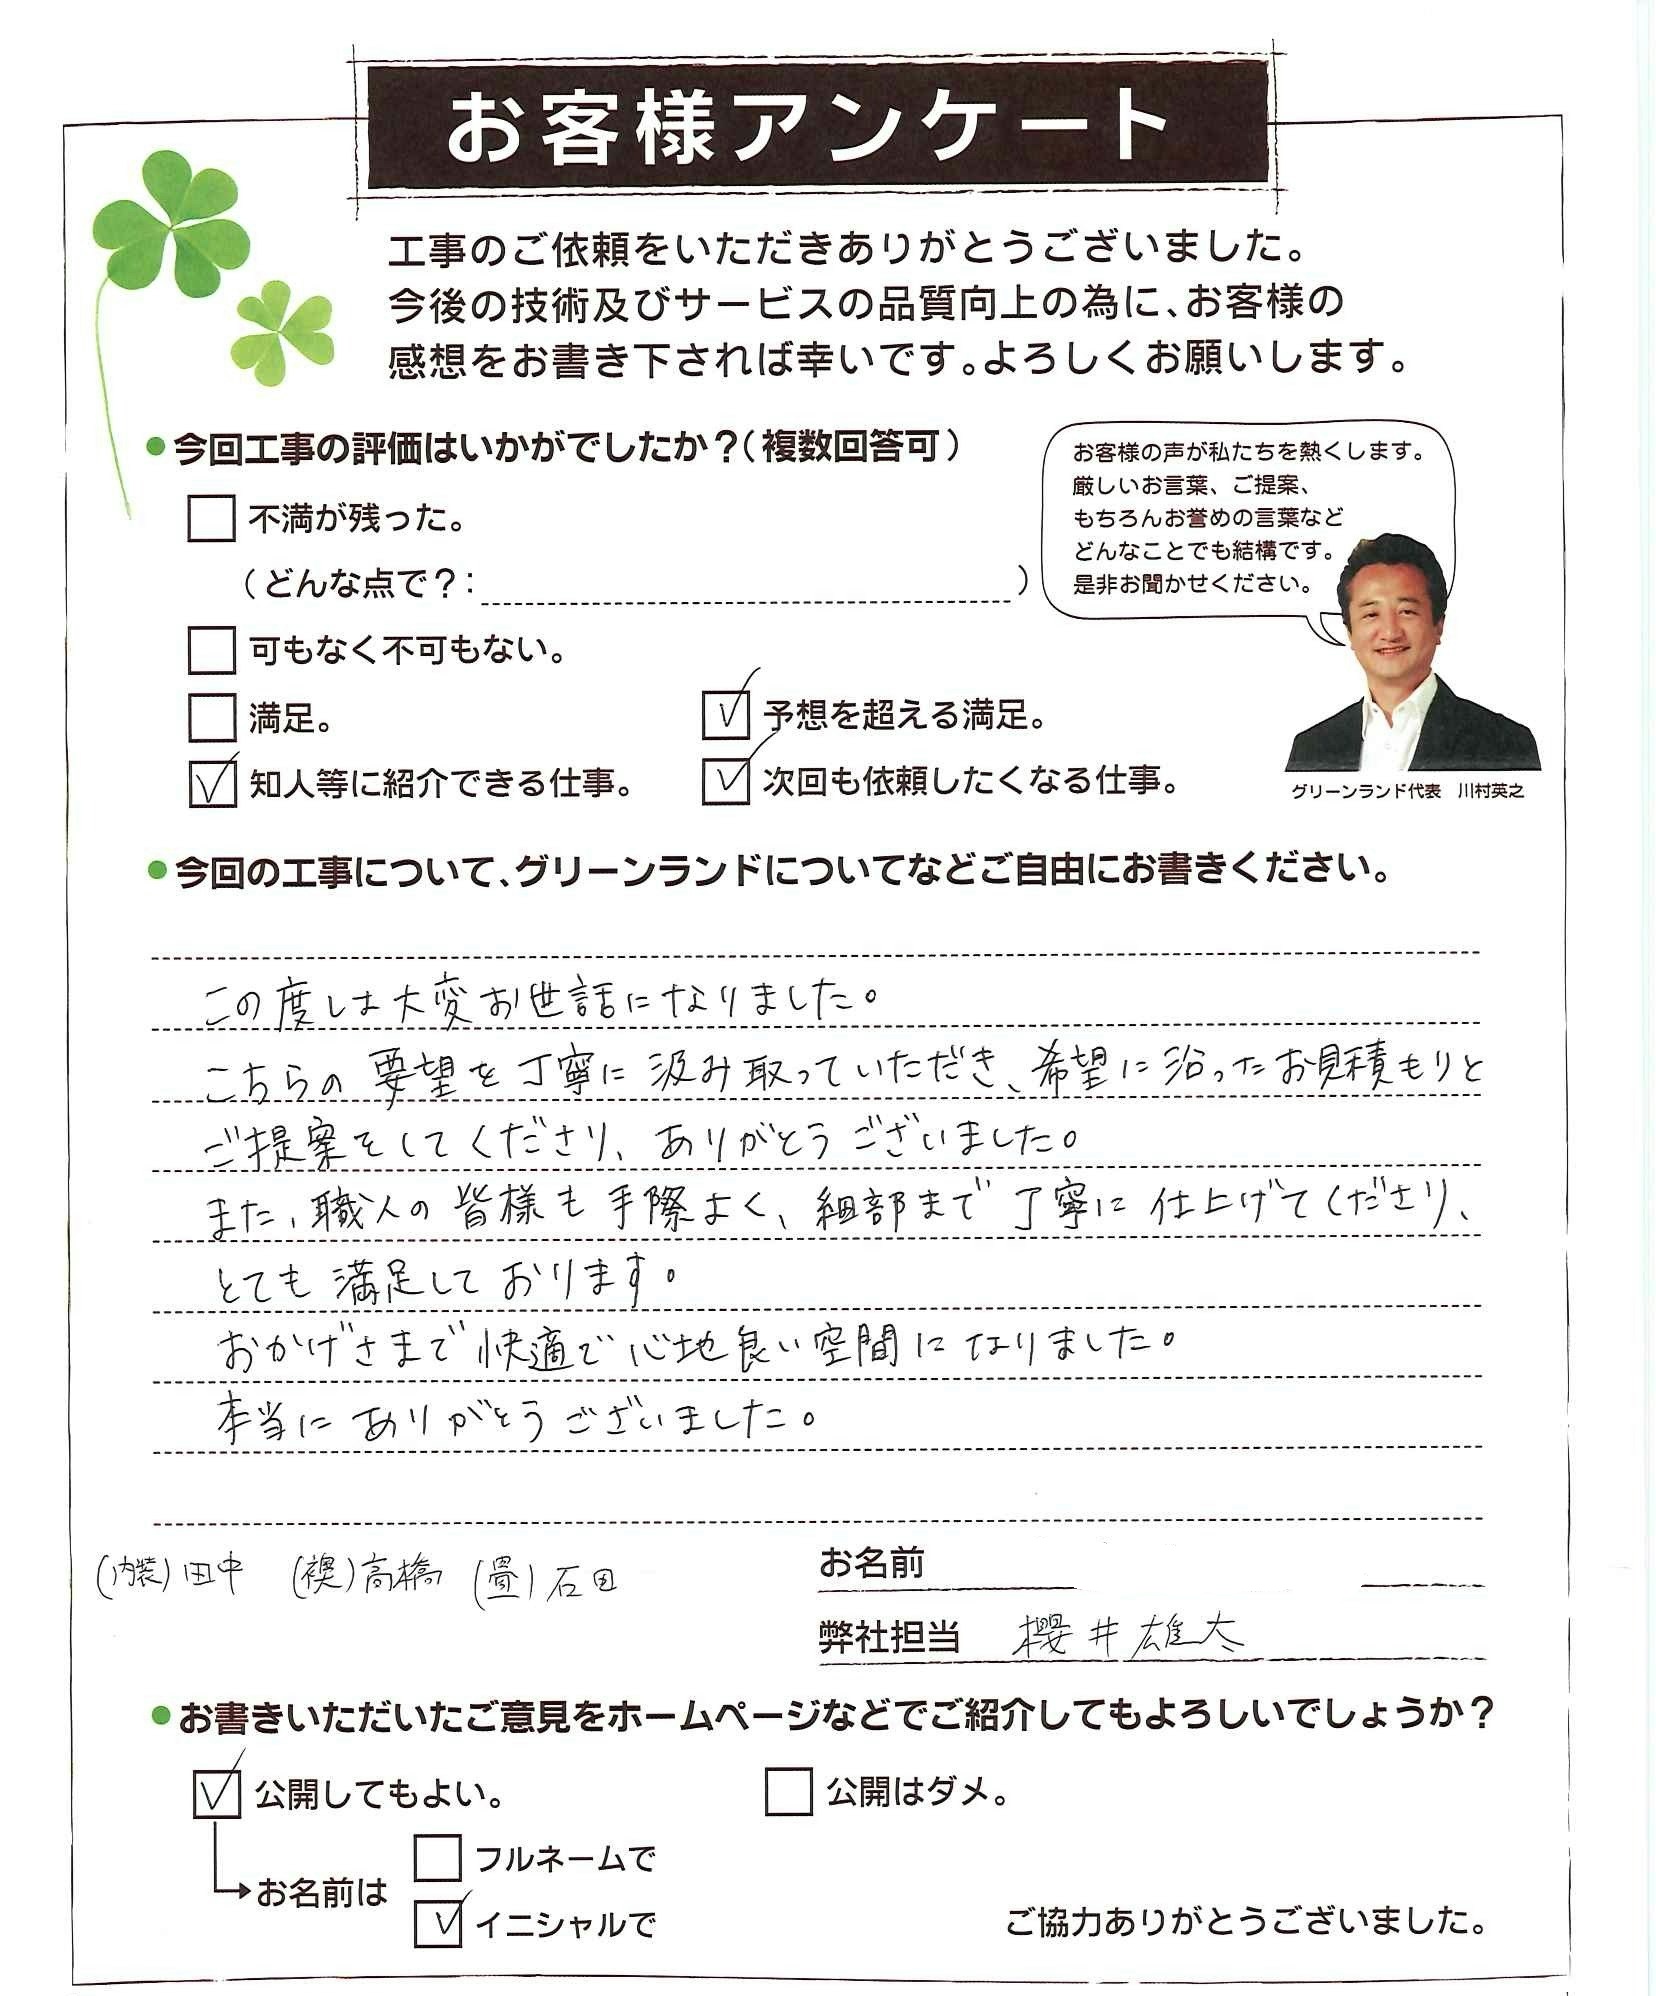 お客様アンケート
工事のご依頼をいただきありがとうございました。
今後の技術及びサービスの品質向上の為に、お客様の
感想をお書き下されば幸いです。よろしくお願いします。
●今回工事の評価はいかがでしたか？（複数回答可）
不満が残った。
（どんな点で？：　　　）
可もなく不可もない。
満足。
予想を超える満足。
知人等に紹介できる仕事。
次回も依頼したくなる仕事。
お客様の声が私たちを熱くします。
厳しいお言葉、ご提案、
もちろんお誉めの言葉など
どんなことでも結構です。
是非お聞かせください。
グリーンランド代表　川村英之
●今回の工事について、グリーンランドについてなどご自由にお書きください。
この度は大変お世話になりました。
こちらの要望を丁寧に汲み取っていただき、希望に沿ったお見積もりと
ご提案をしてくださり、ありがとうございました。
また、職人の皆様も手際よく、細部まで丁寧に仕上げてくださり、
とても満足しております。
おかげさまで快適で心地良い空間になりました。
本当にありがとうございました。
(内装)田中　(襖)高橋　(畳)石田
お名前
弊社担当　櫻井雄太
●お書きいただいたご意見をホームページなどでご紹介してもよろしいでしょうか？
公開してもよい。
公開はダメ。
お名前は
フルネームで
イニシャルで
ご協力ありがとうございました。